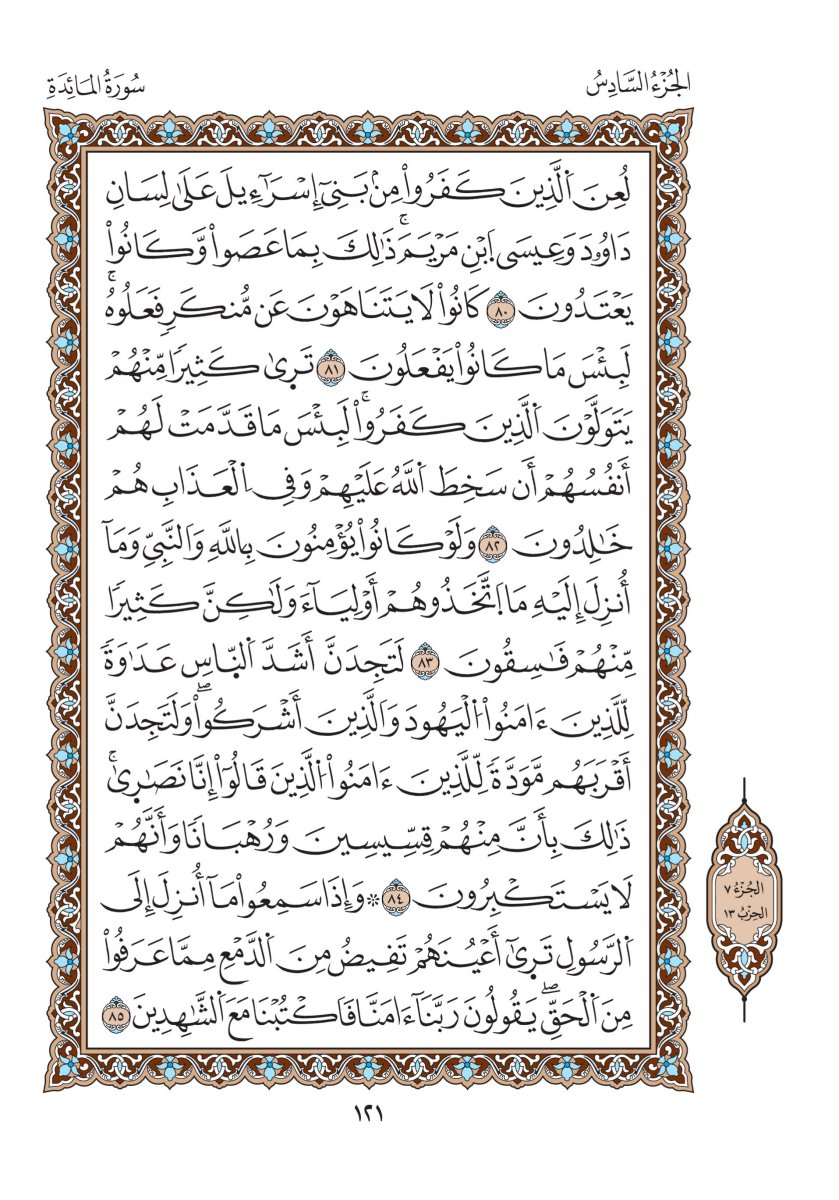 الجُزْءُ السَّادِسُ
سُورَةُ المَائِدَةِ
لُعِنَ اَ۬لَّذِينَ كَفَرُواْ مِنۢ بَنِيٓ إِسْرَآءِيلَ عَلَىٰ لِسَانِ
دَاوُۥدَ وَعِيسَى اَ۪بْنِ مَرْيَمَۚ ذَٰلِكَ بِمَا عَصَواْ وَّكَانُواْ
يَعْتَدُونَ ٨٠ كَانُواْ لَا يَتَنَاهَوْنَ عَن مُّنكَرٖ فَعَلُوهُۚ
لَبِئْسَ مَا كَانُواْ يَفْعَلُونَ ٨١ تَرَىٰ كَثِيرٗا مِّنْهُمْ
يَتَوَلَّوْنَ اَ۬لَّذِينَ كَفَرُواْۚ لَبِئْسَ مَا قَدَّمَتْ لَهُمْ
أَنفُسُهُمْ أَن سَخِطَ اَ۬للَّهُ عَلَيْهِمْ وَفِي اِ۬لْعَذَابِ هُمْ
خَٰلِدُونَ ٨٢ وَلَوْ كَانُواْ يُؤْمِنُونَ بِاللَّهِ وَالنَّبِيِّ وَمَآ
أُنزِلَ إِلَيْهِ مَا اَ۪تَّخَذُوهُمْ أَوْلِيَآءَ وَلَٰكِنَّ كَثِيرٗا
مِّنْهُمْ فَٰسِقُونَ ٨٣ لَتَجِدَنَّ أَشَدَّ اَ۬لنَّاسِ عَدَٰوَةٗ
لِّلَّذِينَ ءَامَنُواْ اُ۬لْيَهُودَ وَالَّذِينَ أَشْرَكُواْۖ وَلَتَجِدَنَّ
أَقْرَبَهُم مَّوَدَّةٗ لِّلَّذِينَ ءَامَنُواْ اُ۬لَّذِينَ قَالُوٓاْ إِنَّا نَصَٰرَىٰۚ
ذَٰلِكَ بِأَنَّ مِنْهُمْ قِسِّيسِينَ وَرُهْبَانٗا وَأَنَّهُمْ
لَا يَسْتَكْبِرُونَ ٨٤ ۞وَإِذَا سَمِعُواْ مَآ أُنزِلَ إِلَى
اَ۬لرَّسُولِ تَرَىٰٓ أَعْيُنَهُمْ تَفِيضُ مِنَ اَ۬لدَّمْعِ مِمَّا عَرَفُواْ
مِنَ اَ۬لْحَقِّۖ يَقُولُونَ رَبَّنَآ ءَامَنَّا فَاكْتُبْنَا مَعَ اَ۬لشَّٰهِدِينَ ٨٥
الجُزْءُ ٧
الحِزْبُ ١٣
١٢١